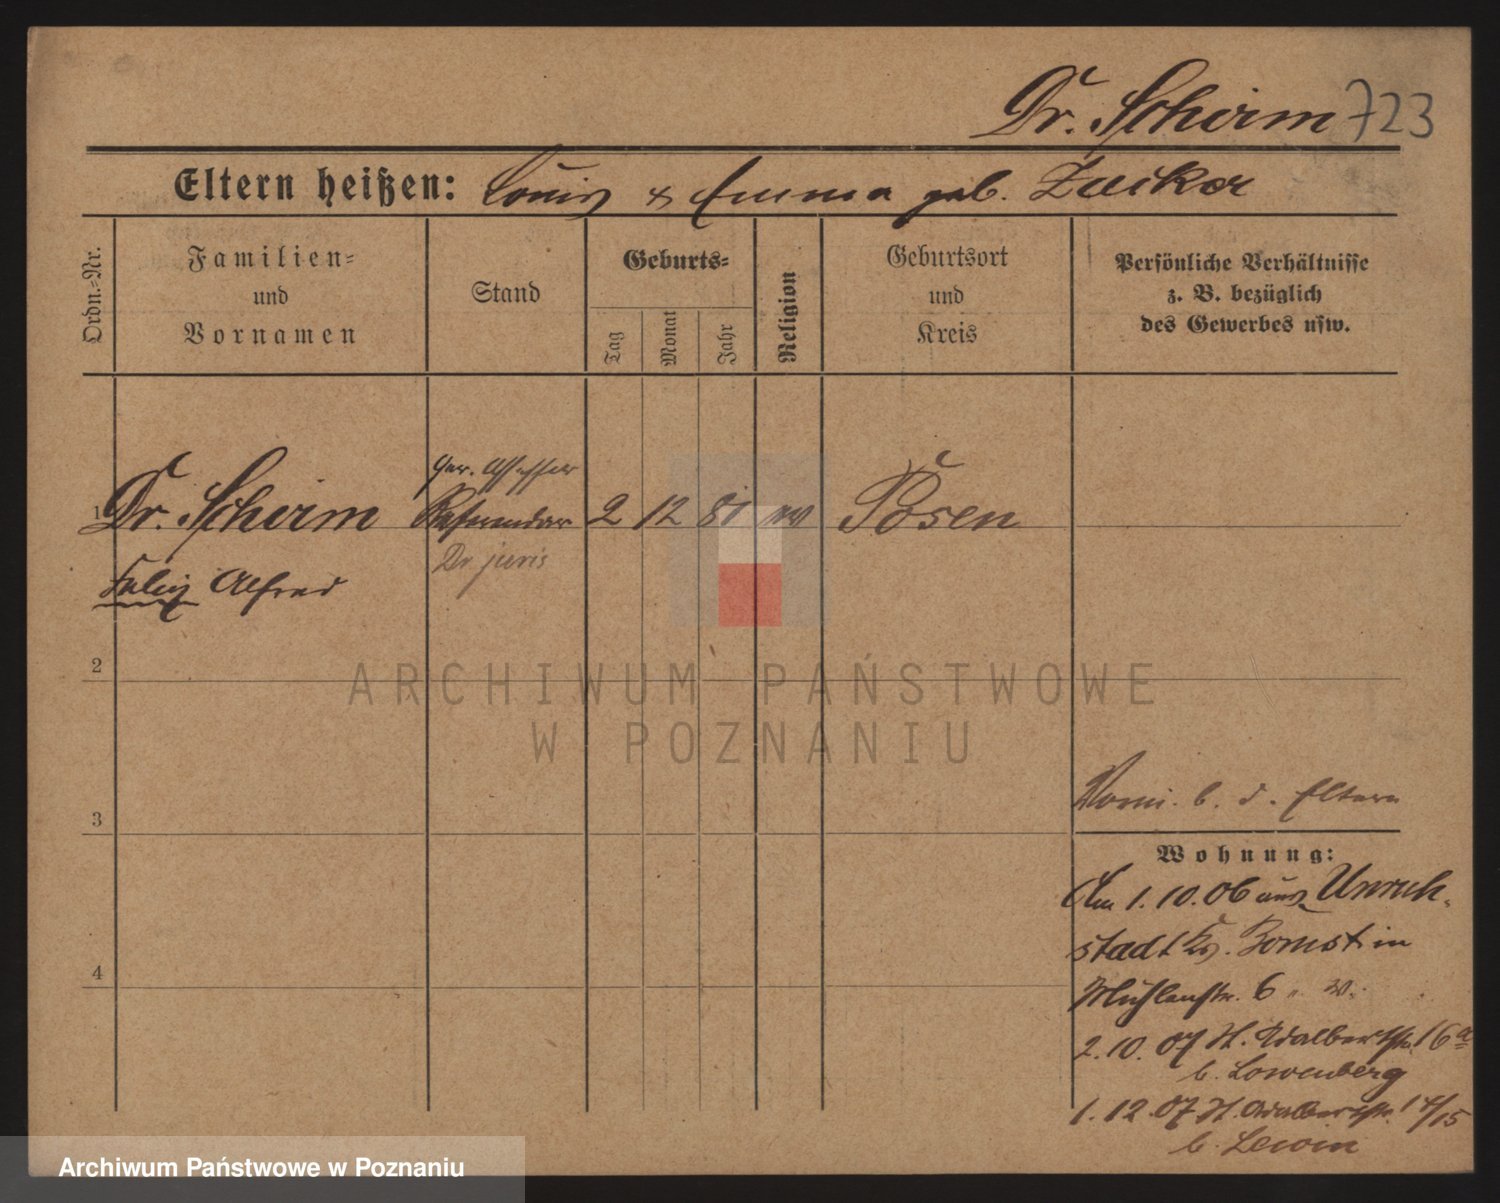 Dr. Schirm 723
Eltern heißen: Louis & Emma geb. Zucker
Ordn.-Nr.
Familien-
und
Vornamen
Stand
Geburts-
Tag
Monat
Jahr
Religion
Geburtsort
und
Kreis
Persönliche Verhältnisse
z. B. bezüglich
des Gewerbes usw.
Ger. Assessor
1 Dr. Schirm Referendar 2 12 81 Posen
Dr juris
Felix Alfred
2
3
4
b. d. Eltern
Wohnung:
Am 1.10.06 aus Unruh-
stadt Kr. Bomst in
Mühlenstr. 6
2.10.07 St. Adalbertstr. 16a
b. Lowenberg
1.12.07 St. Adalbertstr. 14/15
b. Lewin
ARCHIWUM PAŃSTWOWE
W POZNANIU
Archiwum Państwowe w Poznaniu